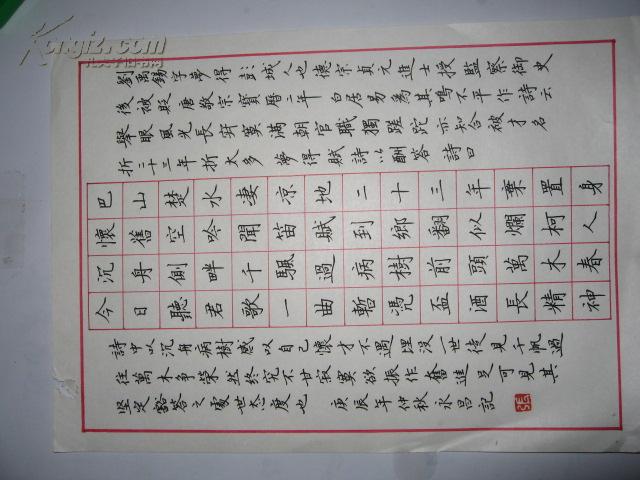 劉禹錫字夢得彭城人也德宗貞元進士授監察御史
後被貶唐敬宗寶曆二年白居易為其鳴不平作詩云
舉眼風光長寂寞滿朝官職獨蹉跎亦知合被才名
折二十三年折太多夢得賦詩以酬答詩曰
巴山楚水凄凉地二十三年棄置身
懷舊空吟聞笛賦到鄉翻似爛柯人
沉舟側畔千颿過病樹前頭萬木春
今日聽君歌一曲暫凴盃酒長精神
詩中以沉舟病樹感以自己懷才不遇埋没一世徒見千帆過
往萬木争荣然終究不甘寂寞欲振作奮進足可見其
坚定豁荅之處世态度也 庚辰年仲秋永昌記
Kongfz.com